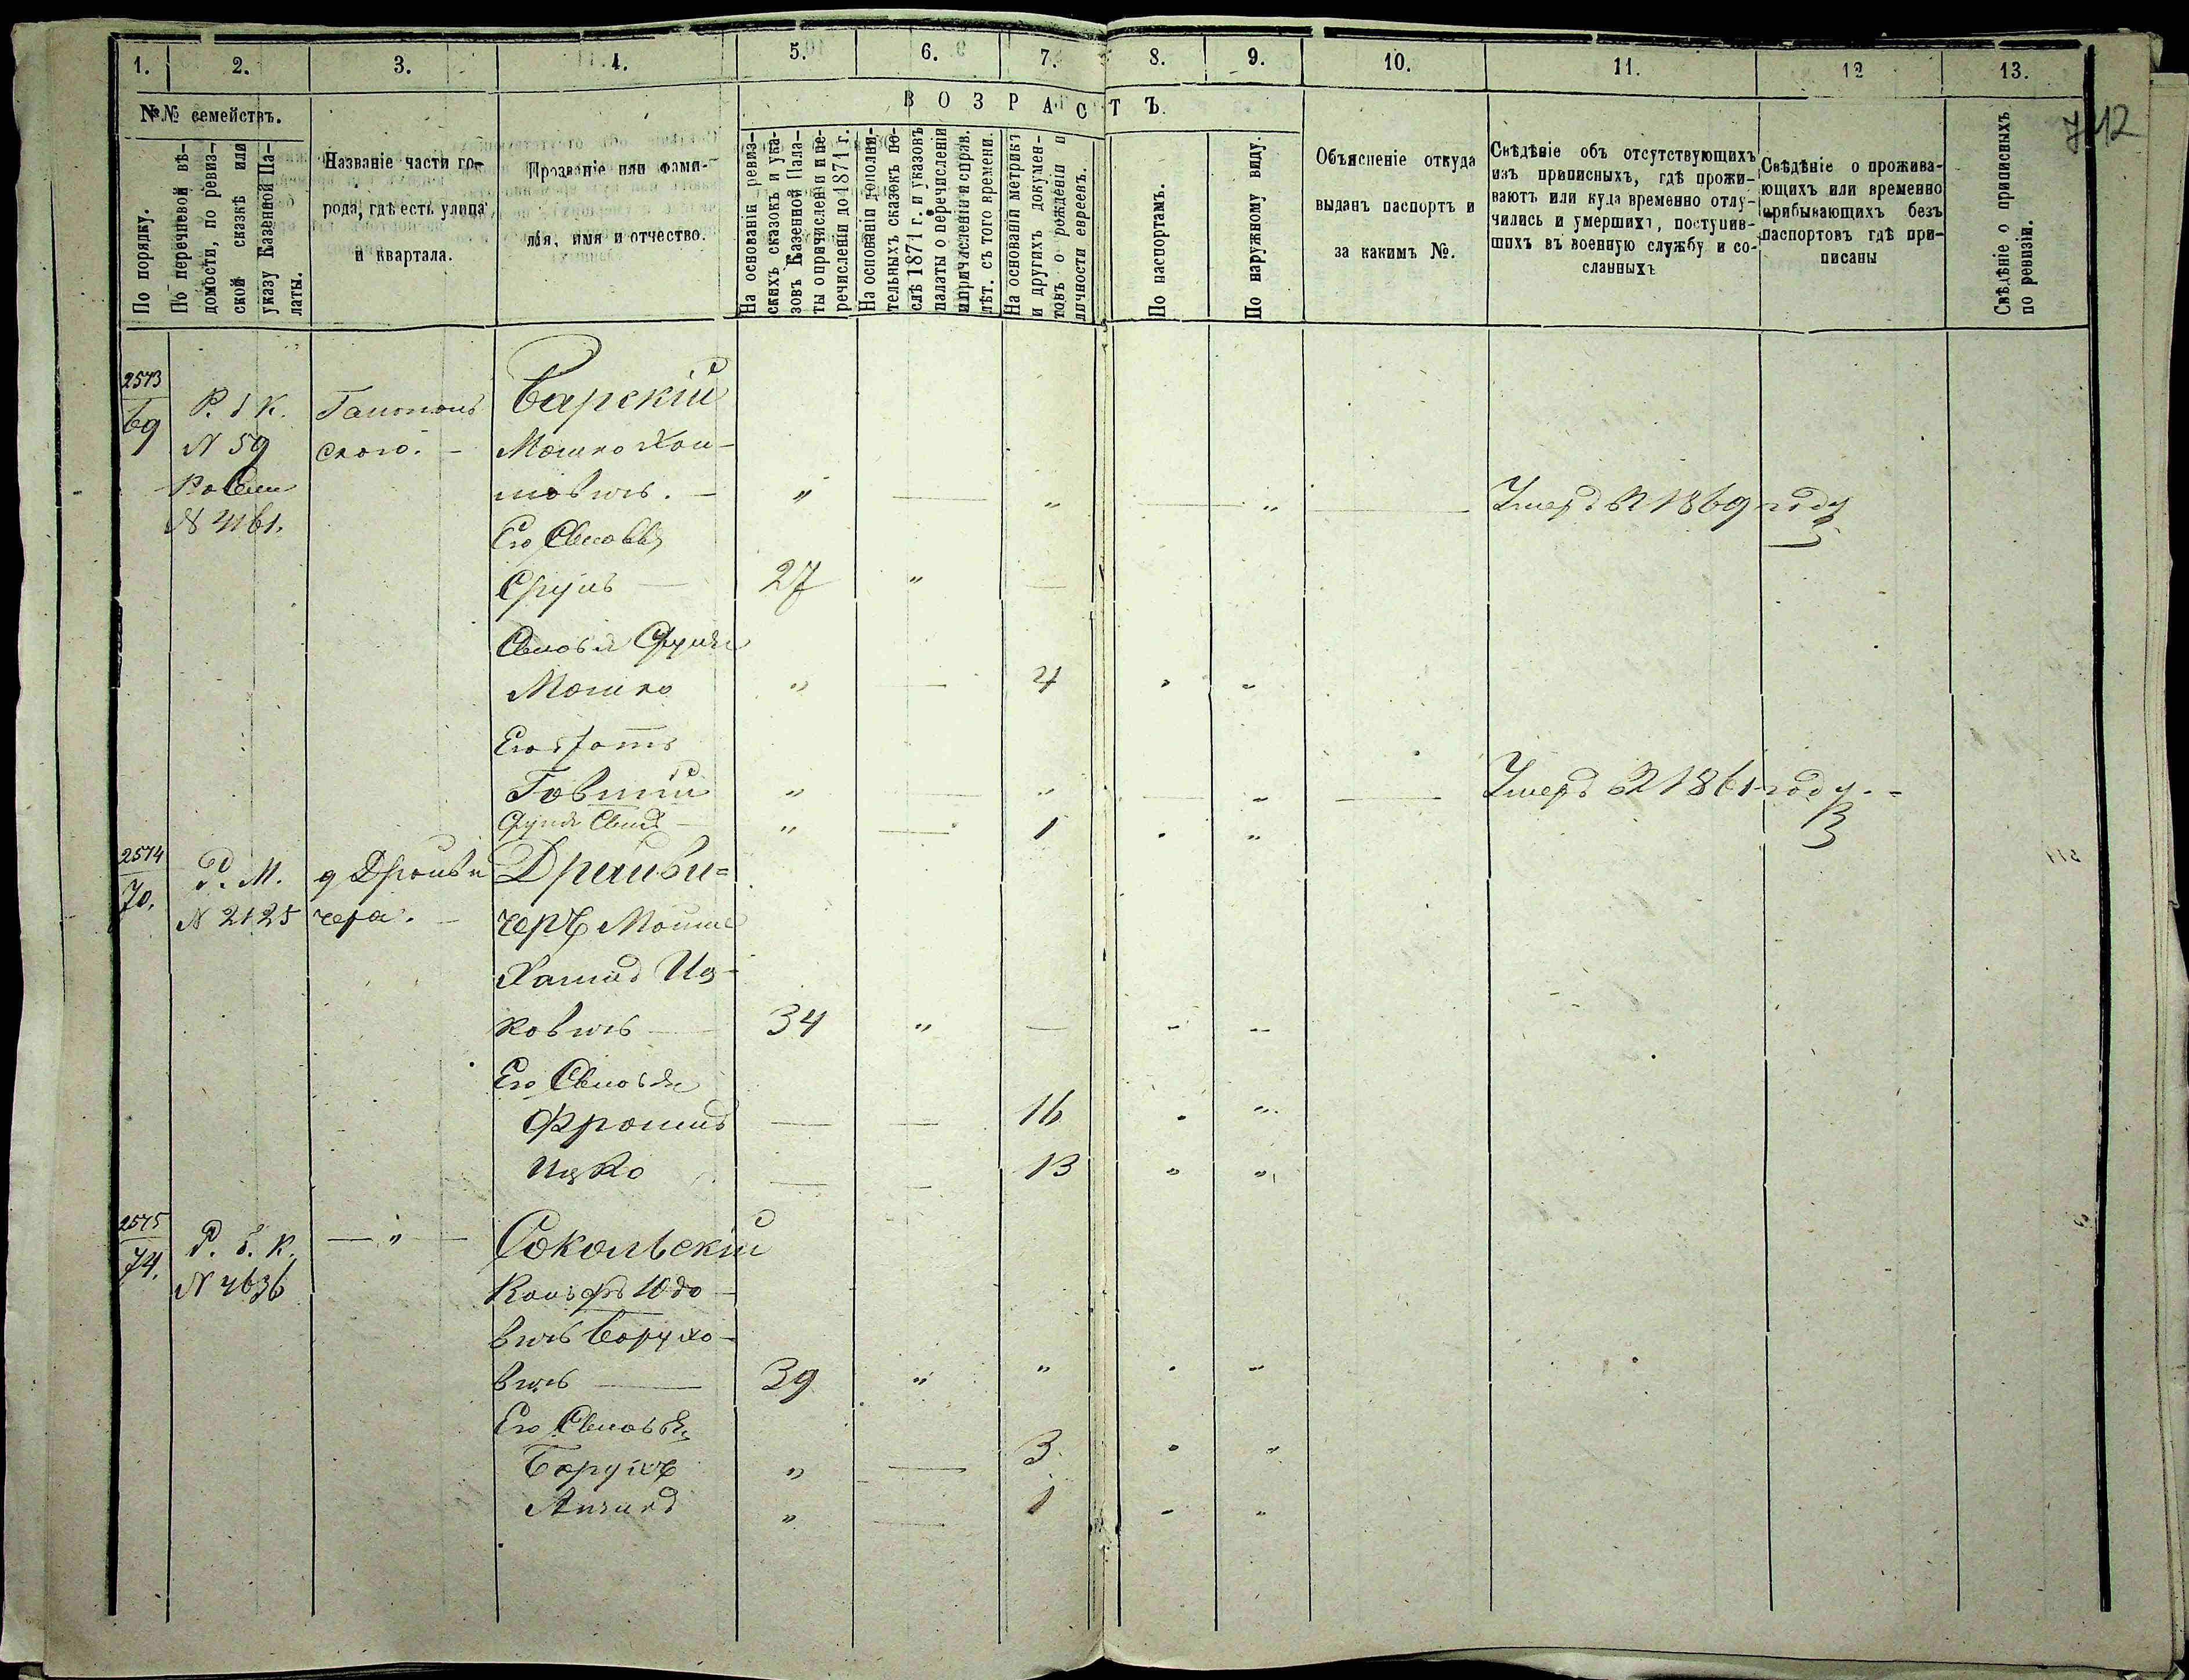 1. 2. 3. 4. 5. 6. 7. 8. 9. 10. 11. 12 13.
742
№№ семействъ.
По порядку.
По перечневой вѣ-
домости, по ревиз-
ской сказкѣ или
указу Казенной Па-
латы.
Названіе части го-
рода, гдѣ есть улица
и квартала.
Прозваніе или фами-
лія, имя и отчество.
ВОЗРАСТЪ.
На основаніи ревиз-
скихъ сказокъ и ука-
зовъ Казенной Пала-
ты о причисленіи и пе-
речисленіи до 1871 г.
На основаніи дополни-
тельныхъ сказокъ по-
слѣ 1871 г. и указовъ
палаты о перечисленіи
и причисленіи и справ.
лѣт. съ того времени.
На основаніи метрикъ
и другихъ докумен-
товъ о рожденіи и
личности евреевъ.
По паспортамъ.
По наружному виду.
Объясненіе откуда
выданъ паспортъ и
за какимъ №.
Свѣдѣніе объ отсутствующихъ
изъ приписныхъ, гдѣ прожи-
ваютъ или куда временно отлу-
чились и умершихъ, поступив-
шихъ въ военную службу и со-
сланныхъ
Свѣдѣніе о прожива-
ющихъ или временно
прибывающихъ безъ
паспортовъ гдѣ при-
писаны
Свѣдѣніе о приписныхъ
по ревизіи.
2573
69
Р. б К.
N 59
N 4161.
ского.
Барскій
Мошко Хаи-
мовичъ. " — " — " — Умеръ въ 1869 году
Его Сыновья
Сруль — 27 " —
Сыновья Сруля
Мошко " — 4 " "
Его братъ
Говшій " — " — " — Умеръ въ 1861 году.
Сруля Сынъ — " — 1 " "
2574
70.
Р. М.
N 2125
чера.
Драйви-
черъ Мойше
Хаимъ Иц-
ковичъ — 34 " — " "
Его Сыновья
Фроимъ — — 16 " "
Ицко — — 13 " "
2575
74.
Р. б. К.
N 4636
— " —
Сокольскій
Юдо
вичъ Борухо-
вичъ — 39 " " " "
Его Сыновья
Борухъ " — 3. " "
Айзикъ " — 1 " "